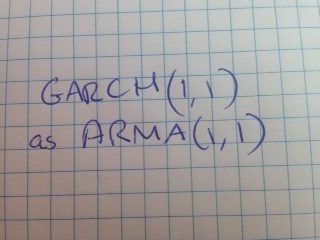 GARCH(1,1)
as ARMA(1,1)